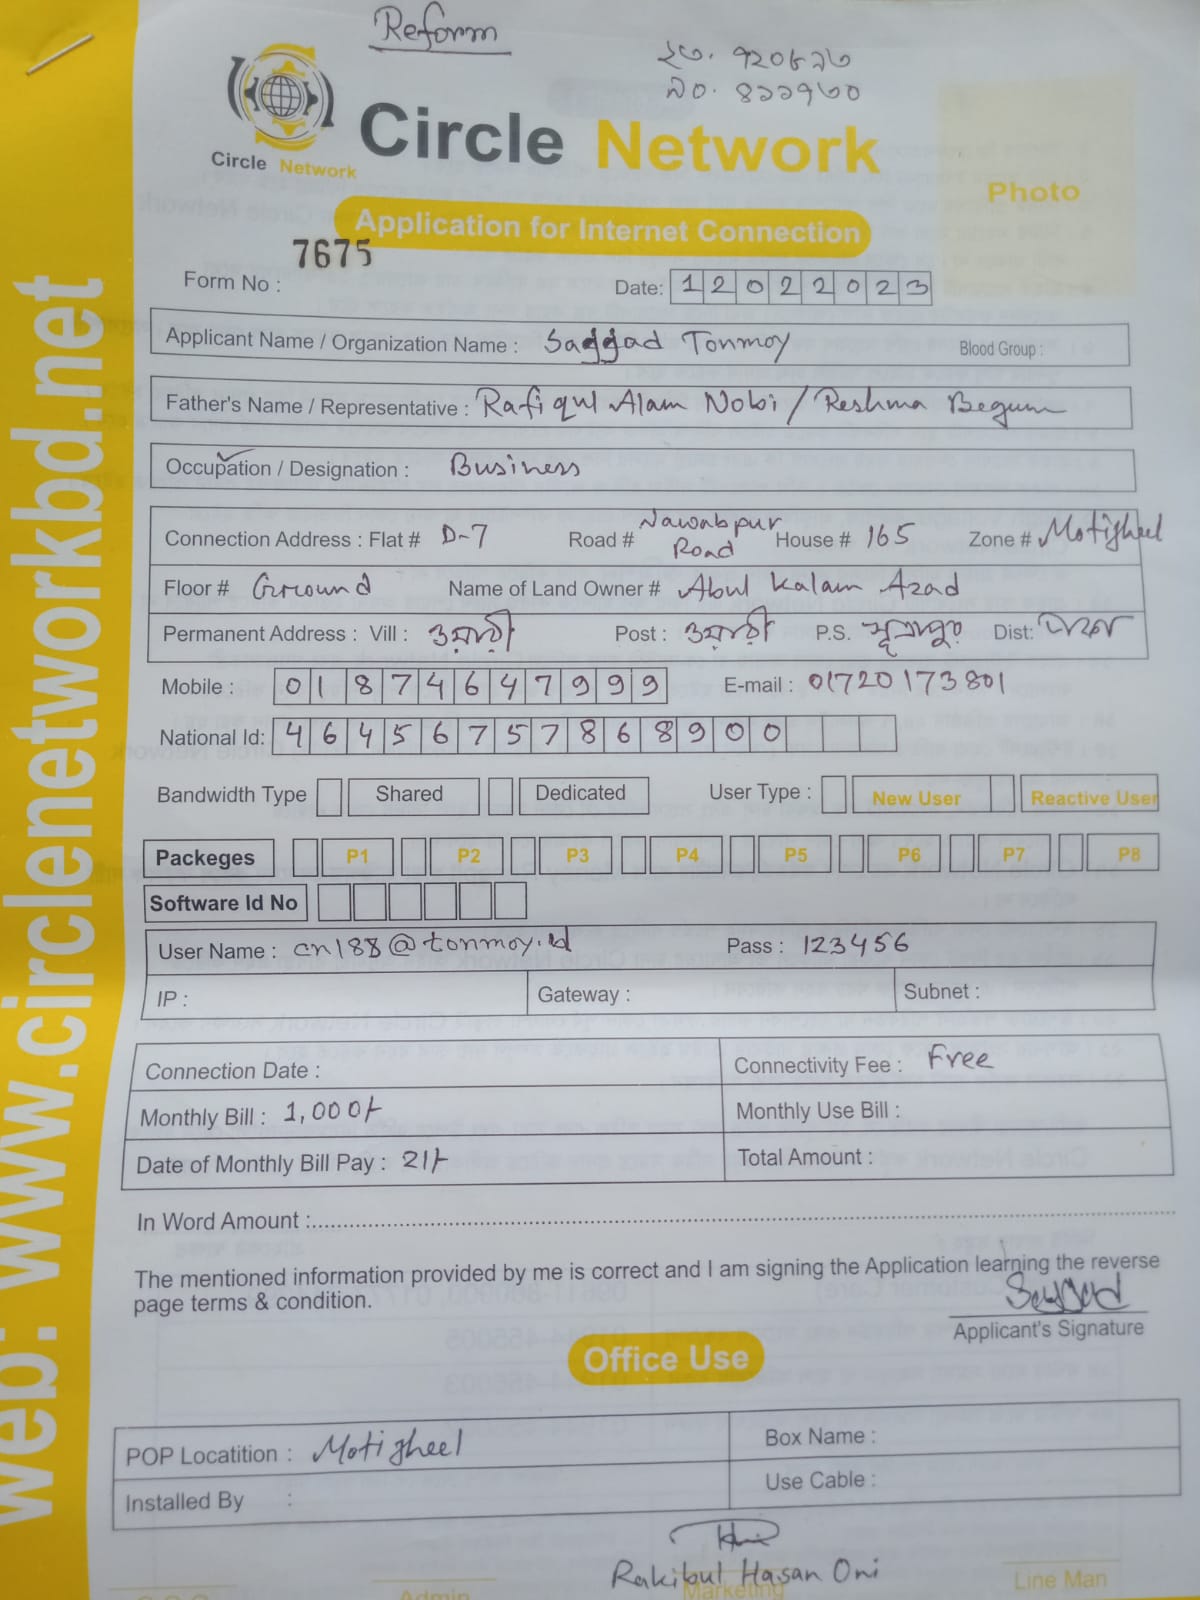 Reform
ইউ. ৭২০৮২৬
নং. ৪১১৭৬০
Circle Network
Circle Network
Photo
Application for Internet Connection
7675
Form No :
Date: 12022023
Applicant Name / Organization Name : Saggad Tonmoy Blood Group :
Father's Name / Representative : Rafiqul Alam Nobi / Reshma Begum
Occupation / Designation : Business
Connection Address : Flat # D-7 Road # Nawabpur Road House # 165 Zone # Motigheel
Floor # Ground Name of Land Owner # Abul Kalam Azad
Permanent Address : Vill : ওয়ারী Post : ওয়ারী P.S. সূত্রাপুর Dist: ঢাকা
Mobile : 01874647999 E-mail : 01720173801
National Id: 46456757868900
Bandwidth Type Shared Dedicated User Type : New User Reactive User
Packeges P1 P2 P3 P4 P5 P6 P7 P8
Software Id No
User Name : cn188@tonmoy.bd Pass : 123456
IP : Gateway : Subnet :
Connection Date : Connectivity Fee : Free
Monthly Bill : 1,000/- Monthly Use Bill :
Date of Monthly Bill Pay : 21/- Total Amount :
In Word Amount :
The mentioned information provided by me is correct and I am signing the Application learning the reverse
page terms & condition.
Saggad
Applicant's Signature
Office Use
POP Locatition : Motigheel Box Name :
Installed By : Use Cable :
Rakibul Hasan Oni
Admin Marketing Line Man
web: www.circlenetworkbd.net